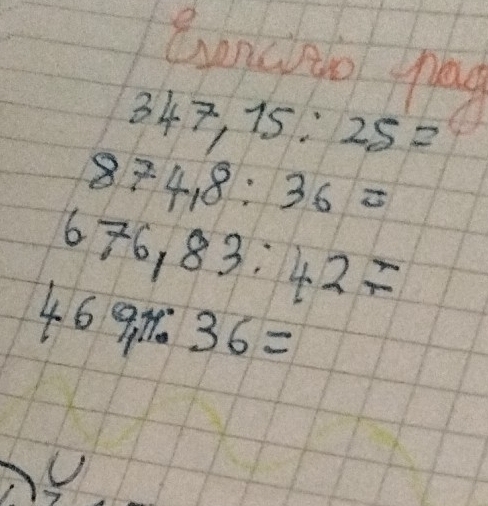 Esercizio pag
347,15 : 25 =
874,8 : 36 =
676,83 : 42 =
36 =